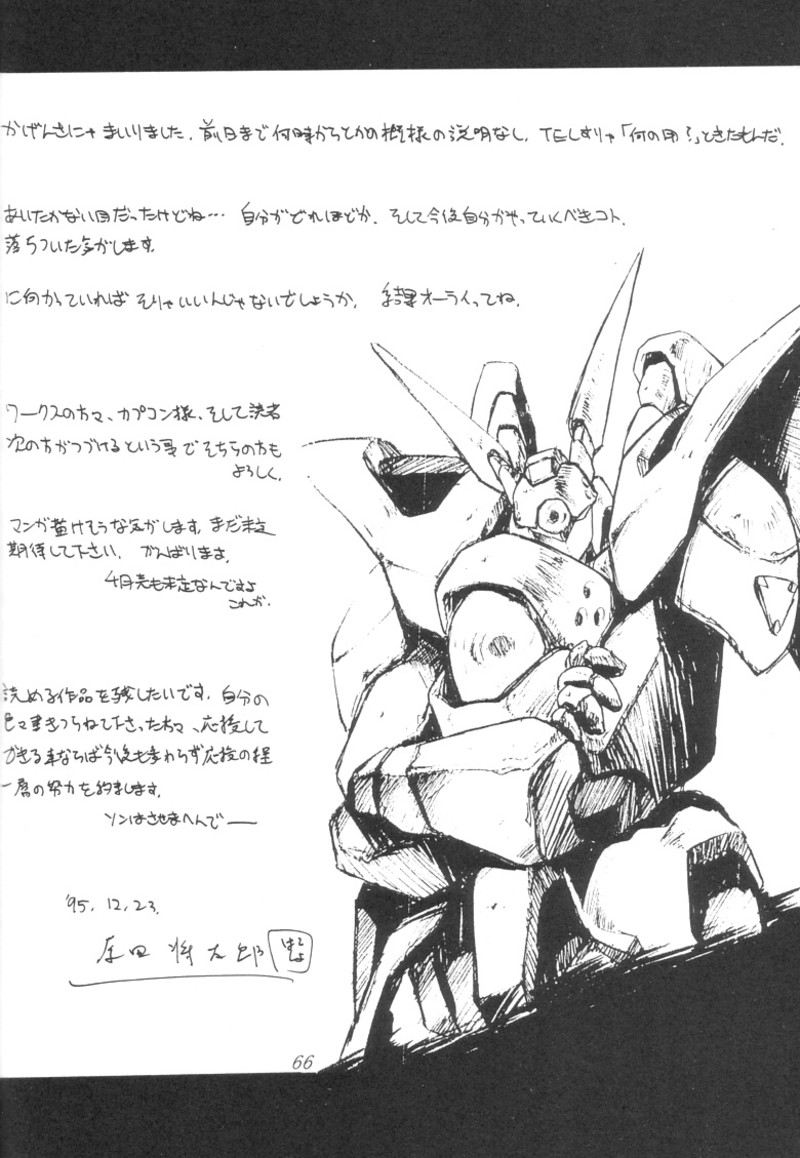 かげんさにゃ まいりました. 前日まで何時からとかの模様の説明なし. TELすりゃ「何の用?」ときたもんだ.
あいたかない目だったけどね… 自分がどれほどか. そして今後自分がやっていくべきコト.
落ちついた気がします.
に向かっていれば そりゃいいんじゃないでしょうか. 結果オーライってね.
ワークスの方々、カプコン様、そして読者
次の方がつづけるという事でそちらの方も
よろしく.
マンガ描けそうな気がします. まだ未定
期待して下さい. がんばります.
4月売も未定なんですよ
これが.
読める作品を残したいです. 自分の
色々書きつらねて下さった方々、応援して
できる事ならば今後も変わらず応援の程
一層の努力を約します.
ソンはさせまへんでー
'95. 12. 23.
原田 将太郎
66